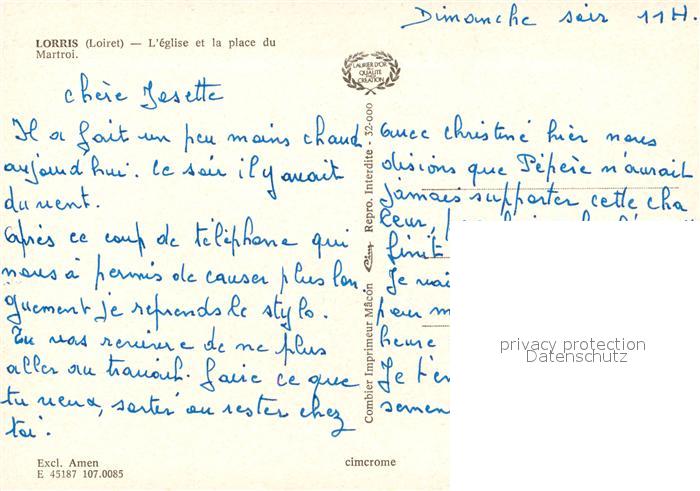 Dimanche soir 11H.
LORRIS (Loiret) — L'église et la place du
Martroi.
LAURIER D'OR
DE LA
QUALITÉ
CRÉATION
chère Josette
Il a fait un peu moins chaud
aujourd'hui. ce soir il y avait
du vent.
après ce coup de téléphone qui
nous à permis de causer plus lon
guement je reprends le stylo.
Tu vas revivre de ne plus
aller au travail. faire ce que
tu veux, sortir ou rester chez
toi.
avec christine hier nous
disions que Pépère n'aurait
jamais supporter cette cha
leur,
finit
Je vai
pour m
heure
Je t'em
semen
Combier Imprimeur Mâcón Cim Repro. Interdite - 32-000
privacy protection
Datenschutz
Excl. Amen
E 45187 107.0085
cimcrome